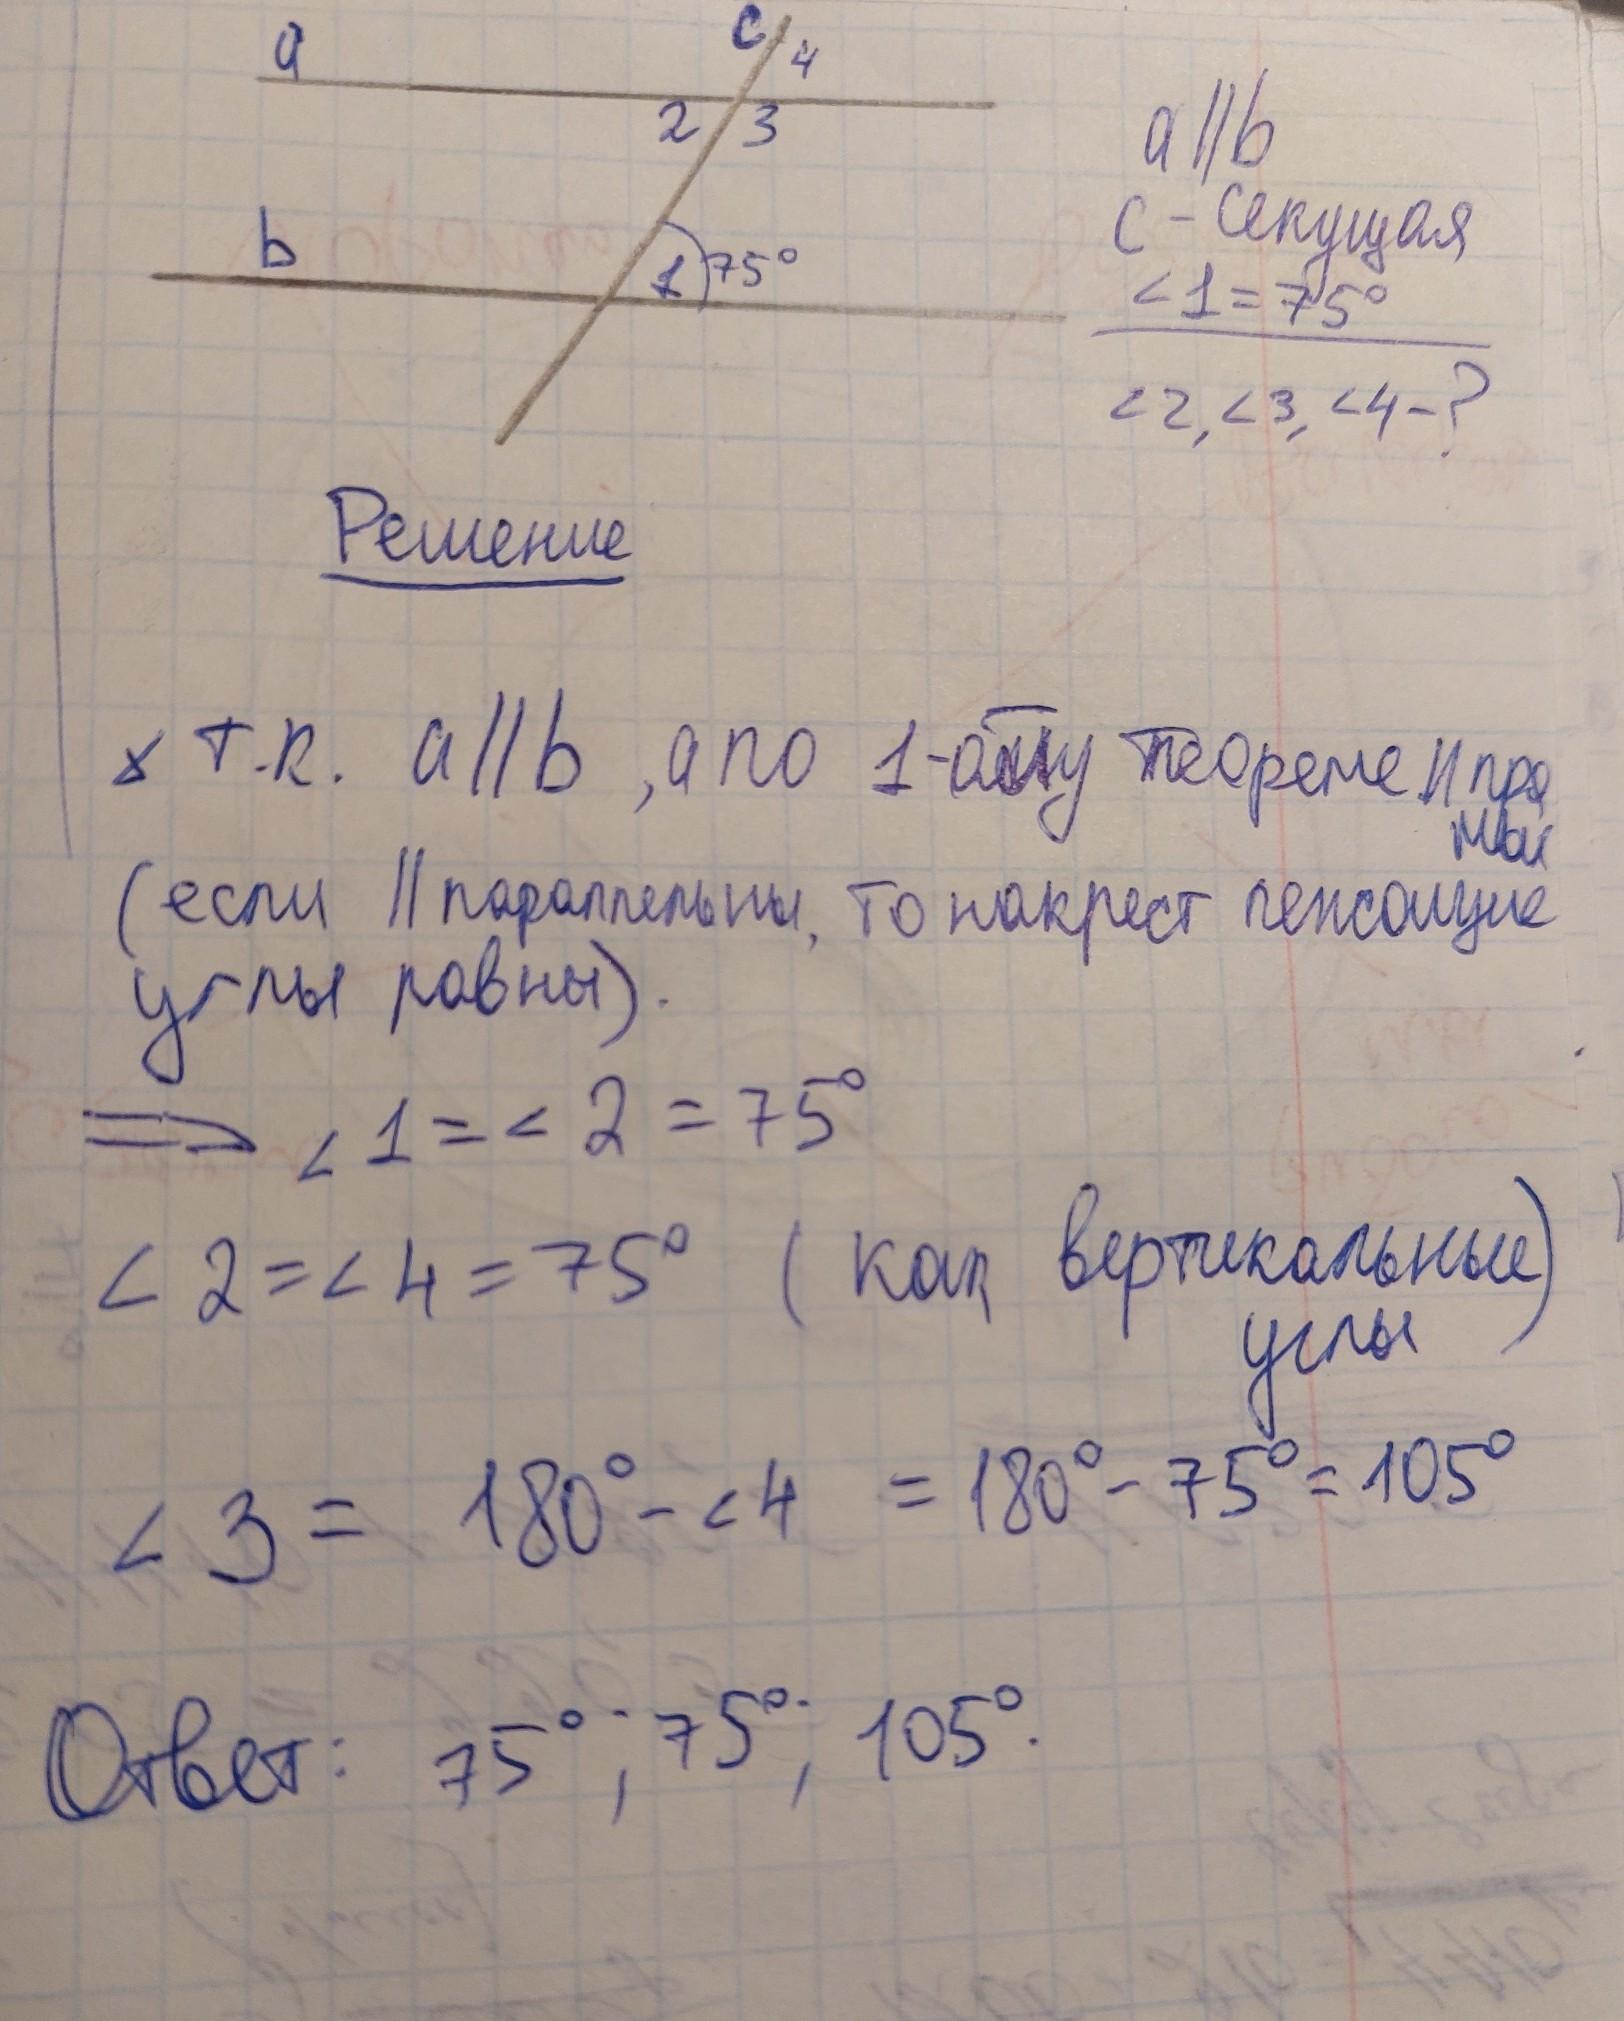 a
c
4
2 3
b
1 75°
a||b
c - секущая
<1=75°
<2, <3, <4-?
Решение
т.к. a||b, а по 1-ому теореме || пря
мых
(если || параллельны, то накрест лежащие
углы равны).
=> <1=<2=75°
<2=<4=75° (как вертикальные)
углы
<3= 180°-<4 =180°-75°=105°
Ответ: 75°; 75°; 105°.